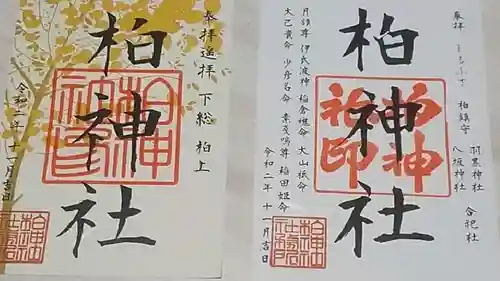 奉拝 遥拝 下総 柏上
柏神社
令和二年十一月吉日
奉拝
柏鎮守 羽黒神社 八坂神社 合祀社
柏神社
月読尊 伊氐波神 稲倉魂命 大山祇命
大己貴命 少彦名命 素戔嗚尊 稲田姫命
令和二年十一月吉日